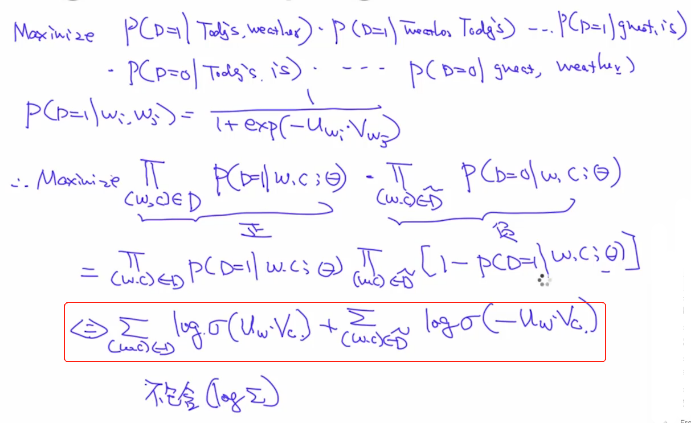 Maximize P(D=1|Today's, weather)·P(D=1|weather, Today's) ---P(D=1|great, is)
·P(D=0|Today's, is)· --- P(D=0|great, weather)
P(D=1|w_i, w_j) = 1 / (1+exp(-U_{w_i}·V_{w_j}))
∴ Maximize ∏_{(w,c)∈D} P(D=1|w,c;θ) · ∏_{(w,c)∈D̃} P(D=0|w,c;θ)
正 负
= ∏_{(w,c)∈D} P(D=1|w,c;θ) ∏_{(w,c)∈D̃} [1-P(D=1|w,c;θ)]
⇔ ∑_{(w,c)∈D} log σ(U_w·V_c) + ∑_{(w,c)∈D̃} log σ(-U_w·V_c)
不包含 (log Σ)